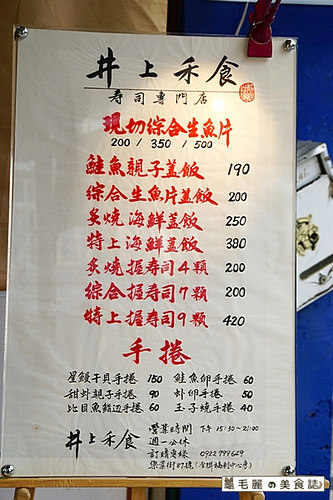 井上禾食
寿司專門店
現切綜合生魚片
200 / 350 / 500
鮭魚親子蓋飯 190
綜合生魚片蓋飯 200
炙燒海鮮蓋飯 250
特上海鮮蓋飯 380
炙燒握寿司4顆 200
綜合握寿司7顆 200
特上握寿司9顆 420
手捲
星鰻干貝手捲 150 鮭魚卵手捲 60
甜蝦親子手捲 90 蝦卵手捲 50
比目魚鰭边手捲 60 玉子燒手捲 40
井上禾食
營業時間 下午 15:30~21:00
週一公休
訂購專線 0922 789669
樂業街87號(全聯福利中心旁)
毛麗の美食誌